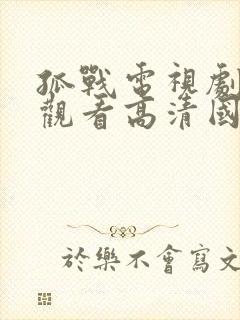 孤戰電視劇
觀看高清國
於樂不會寫文